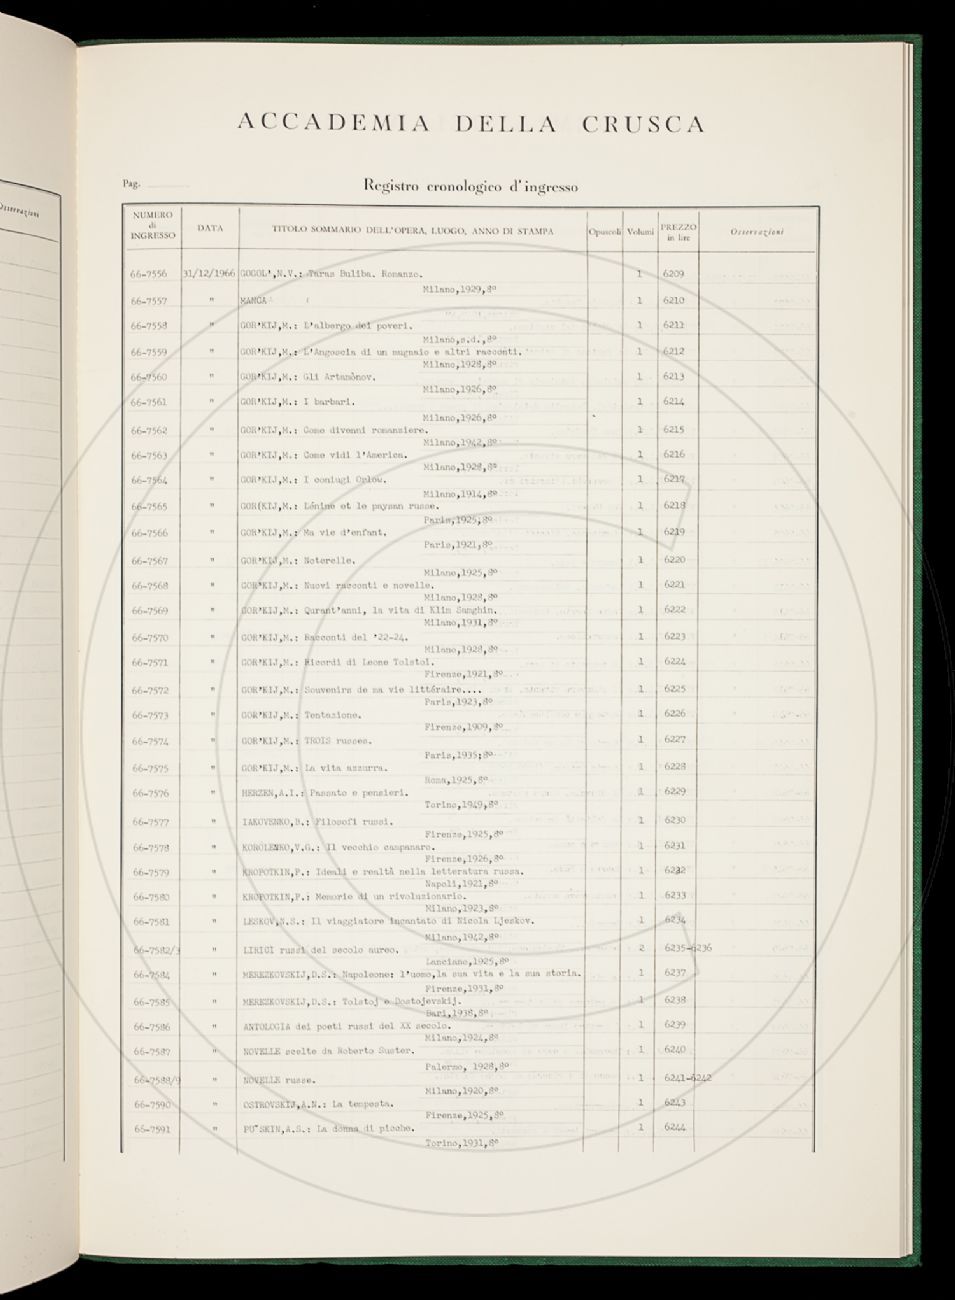 Osservazioni
ACCADEMIA DELLA CRUSCA
Pag.
Registro cronologico d'ingresso
NUMERO di INGRESSO DATA TITOLO SOMMARIO DELL'OPERA, LUOGO, ANNO DI STAMPA Opuscoli Volumi PREZZO in lire Osservazioni
66-7556 31/12/1966 GOGOL',N.V.: Taras Buliba. Romanzo. 1 6209
Milano,1929,8º
66-7557 " MANCA 1 6210
66-7558 " GOR'KIJ,M.: L'albergo dei poveri. 1 6211
Milano,s.d.,8º
66-7559 " GOR'KIJ,M.: L'Angoscia di un mugnaio e altri racconti. 1 6212
Milano,1928,8º
66-7560 " GOR'KIJ,M.: Gli Artamònov. 1 6213
Milano,1926,8º
66-7561 " GOR'KIJ,M.: I barbari. 1 6214
Milano,1926,8º
66-7562 " GOR'KIJ,M.: Come divenni romanziere. 1 6215
Milano,1942,8º
66-7563 " GOR'KIJ,M.: Come vidi l'America. 1 6216
Milano,1928,8º
66-7564 " GOR'KIJ,M.: I coniugi Orlou. 1 6217
Milano,1914,8º
66-7565 " GOR(KIJ,M.: Lénine et le paysan russe. 1 6218
Paris,1925,8º
66-7566 " GOR'KIJ,M.: Ma vie d'enfant. 1 6219
Paris,1921,8º
66-7567 " GOR'KIJ,M.: Noterelle. 1 6220
Milano,1925,8º
66-7568 " GOR'KIJ,M.: Nuovi racconti e novelle. 1 6221
Milano,1928,8º
66-7569 " GOR'KIJ,M.: Qurant'anni, la vita di Klim Samghin. 1 6222
Milano,1931,8º
66-7570 " GOR'KIJ,M.: Racconti del '22-24. 1 6223
Milano,1928,8º
66-7571 " GOR'KIJ,M.: Ricordi di Leone Tolstoi. 1 6224
Firenze,1921,8º
66-7572 " GOR'KIJ,M.: Souvenirs de ma vie littéraire.... 1 6225
Paris,1923,8º
66-7573 " GOR'KIJ,M.: Tentazione. 1 6226
Firenze,1909,8º
66-7574 " GOR'KIJ,M.: TROIS russes. 1 6227
Paris,1935;8º
66-7575 " GOR'KIJ,M.: La vita azzurra. 1 6228
Roma,1925,8º
66-7576 " HERZEN,A.I.: Passato e pensieri. 1 6229
Torino,1949,8º
66-7577 " IAKOVENKO,B.: Filosofi russi. 1 6230
Firenze,1925,8º
66-7578 " KOROLENKO,V.G.: Il vecchio campanaro. 1 6231
Firenze,1926,8º
66-7579 " KROPOTKIN,P.: Ideali e realtà nella letteratura russa. 1 6232
Napoli,1921,8º
66-7580 " KROPOTKIN,P.: Memorie di un rivoluzionario. 1 6233
Milano,1923,8º
66-7581 " LESKOV,N.S.: Il viaggiatore incantato di Nicola Ljeskov. 1 6234
Milano,1942,8º
66-7582/3 " LIRICI russi del secolo aureo. 2 6235-6236
Lanciano,1925,8º
66-7584 " MEREZKOVSKIJ,D.S.: Napoleone: l'uomo,la sua vita e la sua storia. 1 6237
Firenze,1931,8º
66-7585 " MEREZKOVSKIJ,D.S.: Tolstoj e Dostojevskij. 1 6238
Bari,1938,8º
66-7586 " ANTOLOGIA dei poeti russi del XX secolo. 1 6239
Milano,1924,8º
66-7587 " NOVELLE scelte da Roberto Suster. 1 6240
Palermo, 1928,8º
66-7588/9 " NOVELLE russe. 1 6241-6242
Milano,1920,8º
66-7590 " OSTROVSKIJ,A.N.: La tempesta. 1 6243
Firenze,1925,8º
66-7591 " PU˘SKIN,A.S.: La donna di picche. 1 6244
Torino,1931,8º